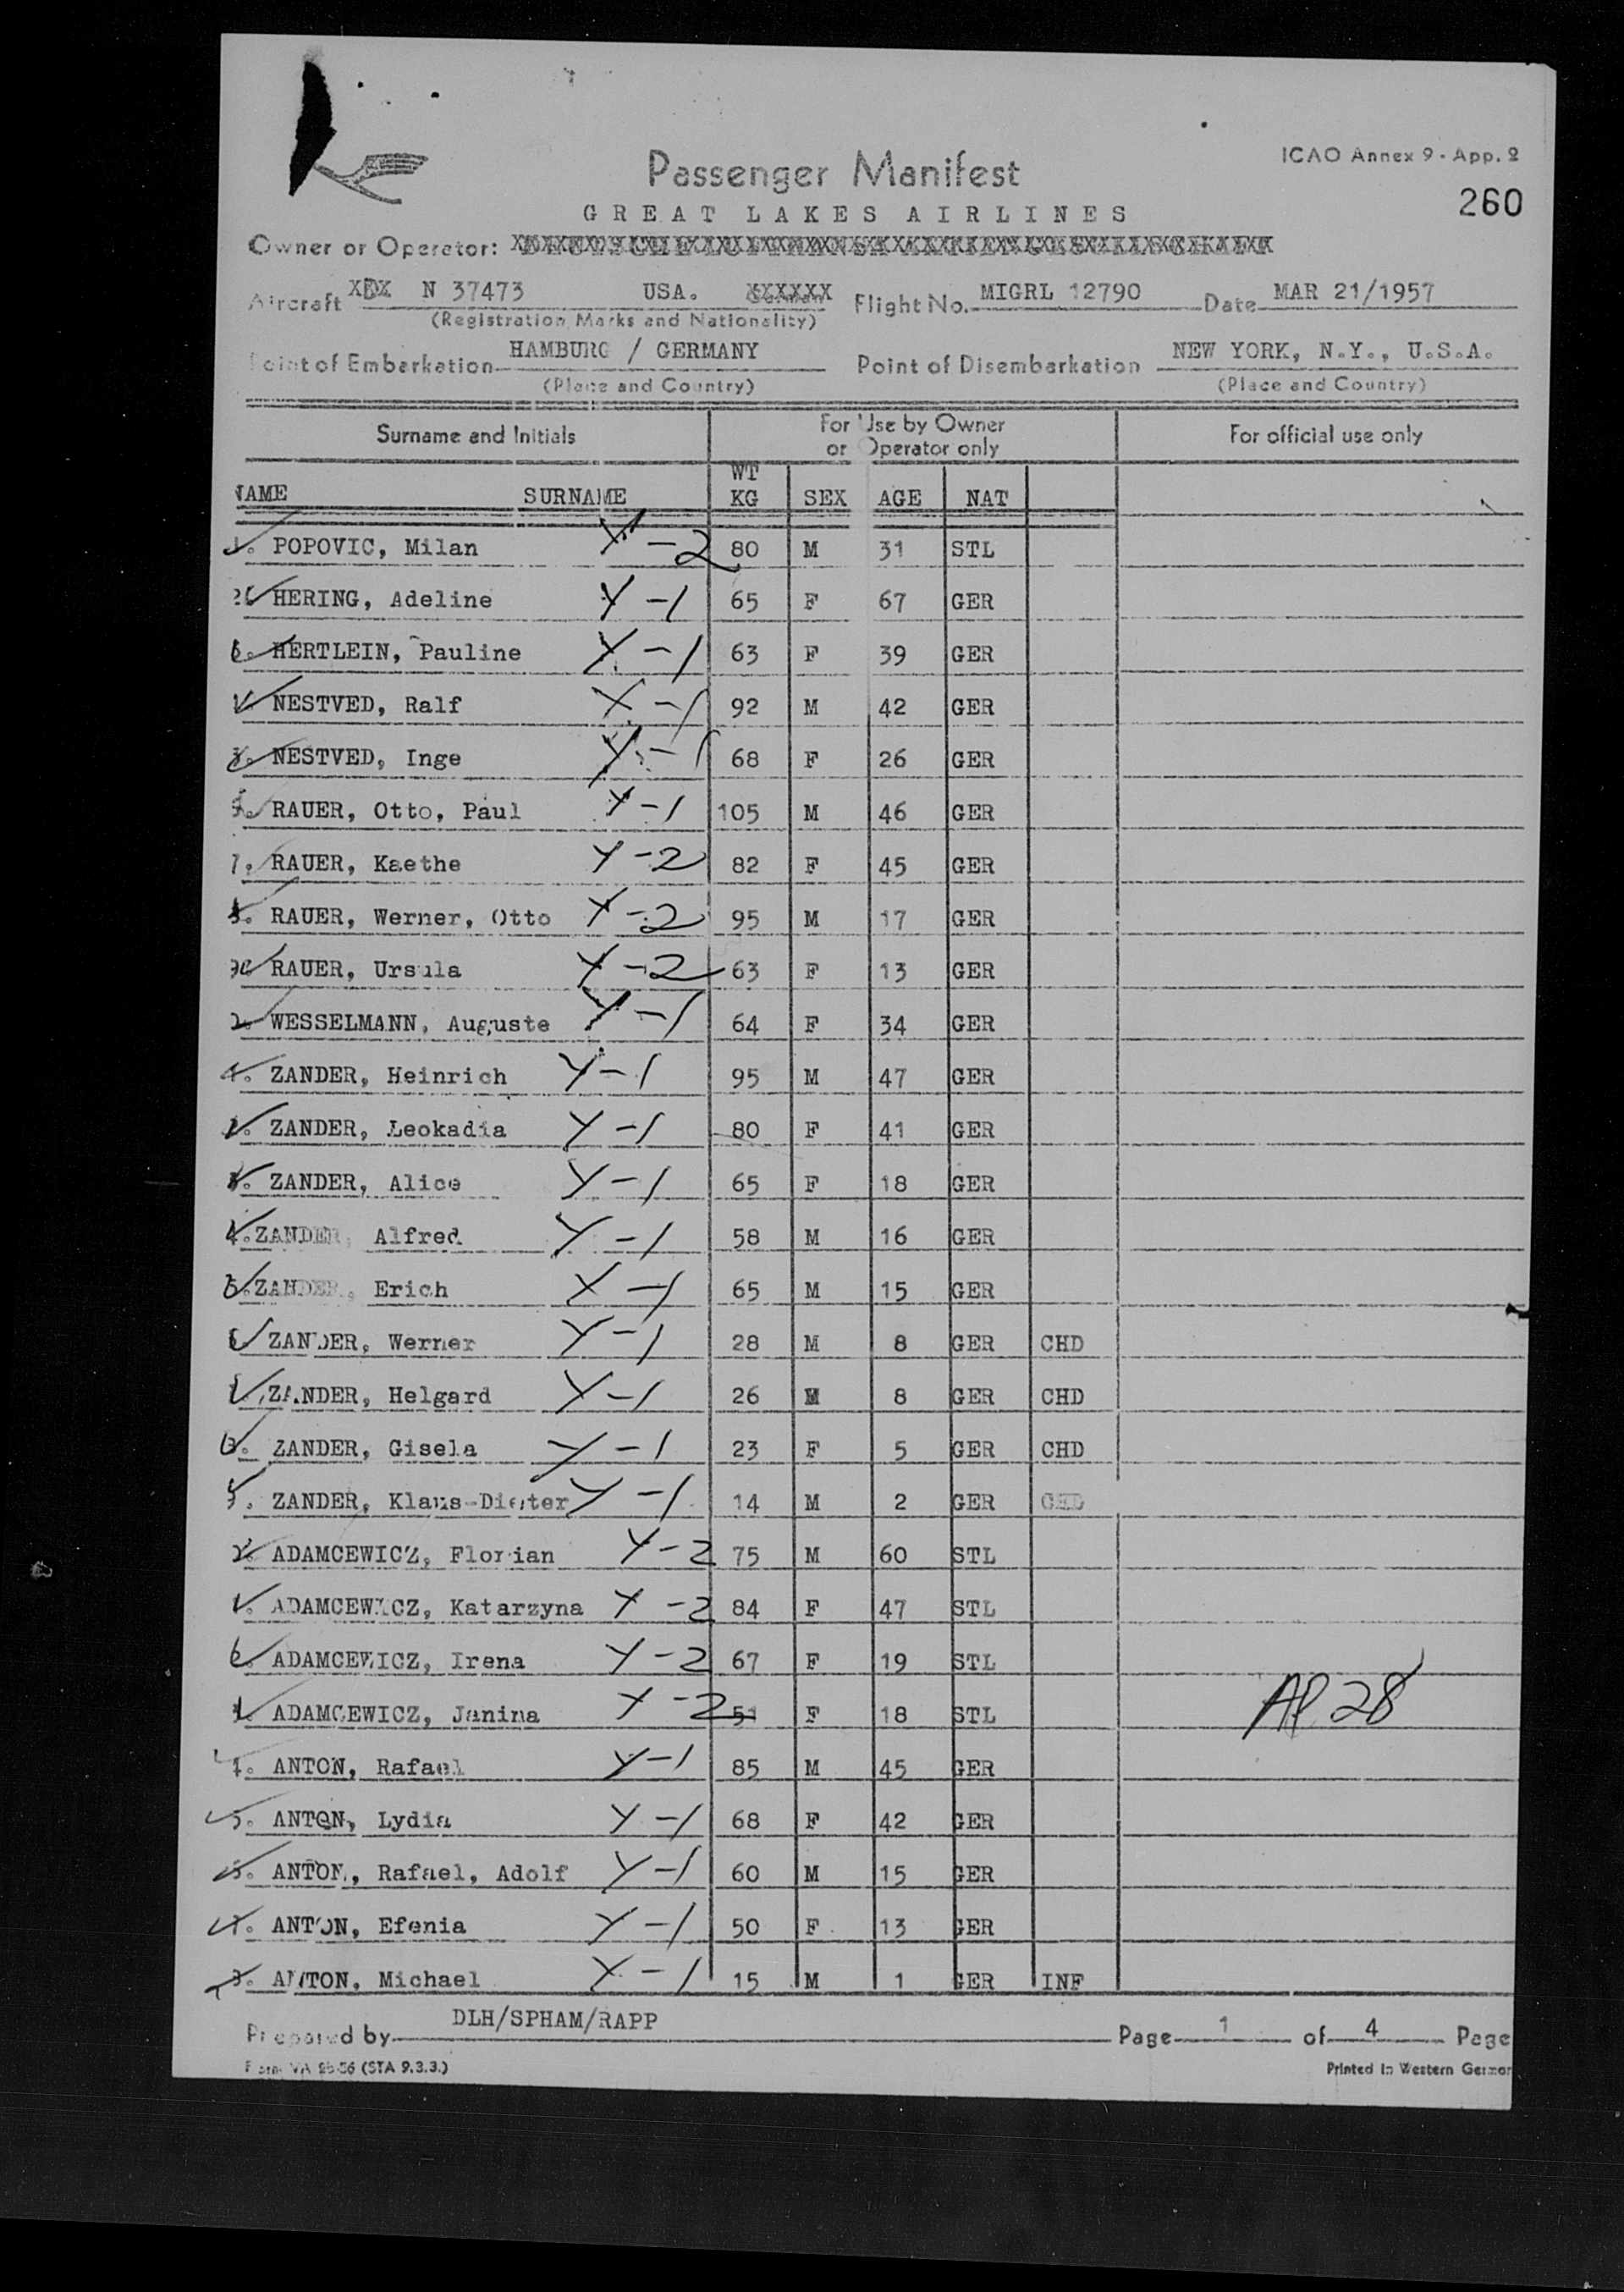 ICAO Annex 9 - App. 2
Passenger Manifest
260
GREAT LAKES AIRLINES
Owner or Operator:
Aircraft N 37473 USA. Flight No. MIGRL 12790 Date MAR 21/1957
(Registration Marks and Nationality)
Point of Embarkation HAMBURG / GERMANY Point of Disembarkation NEW YORK, N.Y., U.S.A.
(Place and Country) (Place and Country)
Surname and Initials For Use by Owner or Operator only For official use only
NAME SURNAME WT KG SEX AGE NAT
1. POPOVIC, Milan Y-2 80 M 31 STL
2. HERING, Adeline Y-1 65 F 67 GER
HERTLEIN, Pauline Y-1 63 F 39 GER
NESTVED, Ralf X-1 92 M 42 GER
NESTVED, Inge Y-1 68 F 26 GER
RAUER, Otto, Paul Y-1 105 M 46 GER
7. RAUER, Kaethe Y-2 82 F 45 GER
RAUER, Werner, Otto Y-2 95 M 17 GER
RAUER, Ursula Y-2 63 F 13 GER
WESSELMANN, Auguste Y-1 64 F 34 GER
ZANDER, Heinrich Y-1 95 M 47 GER
ZANDER, Leokadia Y-1 80 F 41 GER
ZANDER, Alice Y-1 65 F 18 GER
4. ZANDER, Alfred Y-1 58 M 16 GER
5. ZANDER, Erich X-1 65 M 15 GER
ZANDER, Werner Y-1 28 M 8 GER CHD
ZANDER, Helgard Y-1 26 M 8 GER CHD
ZANDER, Gisela Y-1 23 F 5 GER CHD
9. ZANDER, Klaus-Dieter Y-1 14 M 2 GER CHD
ADAMCEWICZ, Florian Y-2 75 M 60 STL
ADAMCEWICZ, Katarzyna Y-2 84 F 47 STL
ADAMCEWICZ, Irena Y-2 67 F 19 STL
ADAMCEWICZ, Janina Y-2 51 F 18 STL AP 28
4. ANTON, Rafael Y-1 85 M 45 GER
5. ANTON, Lydia Y-1 68 F 42 GER
ANTON, Rafael, Adolf Y-1 60 M 15 GER
7. ANTON, Efenia Y-1 50 F 13 GER
8. ANTON, Michael Y-1 15 M 1 GER INF
Prepared by DLH/SPHAM/RAPP Page 1 of 4 Page
Form VA 26-56 (STA 9.3.3.) Printed in Western German